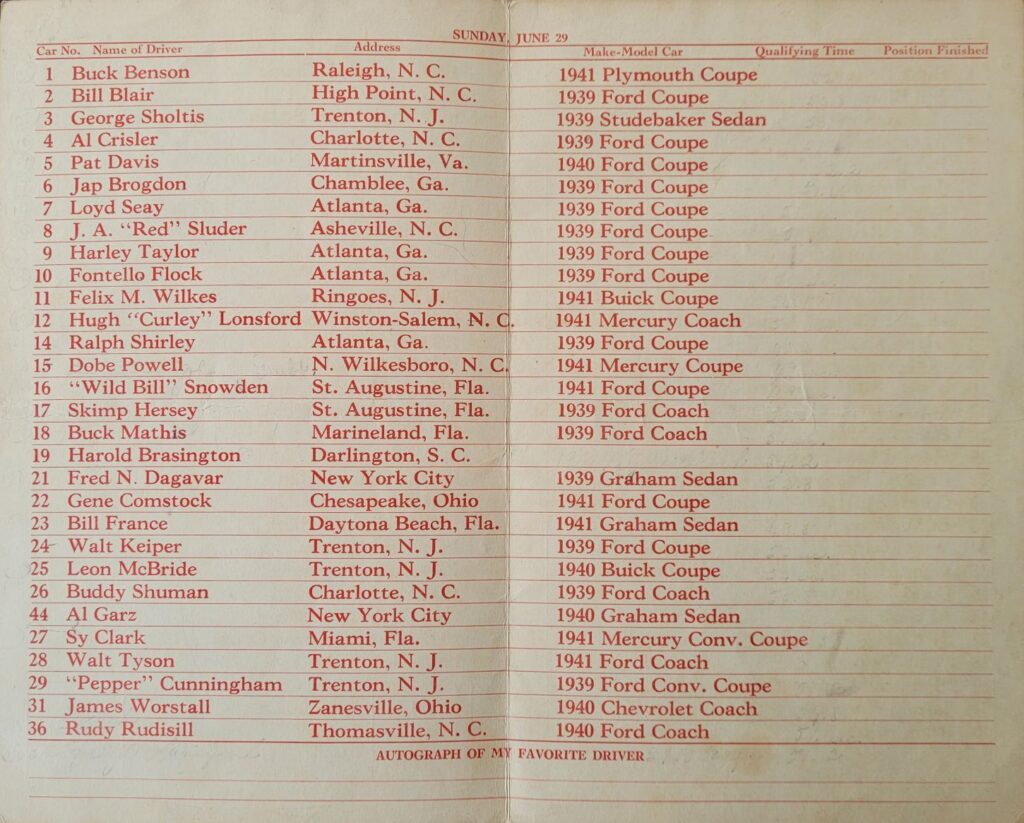 SUNDAY, JUNE 29
Car No. Name of Driver Address Make-Model Car Qualifying Time Position Finished
1 Buck Benson Raleigh, N. C. 1941 Plymouth Coupe
2 Bill Blair High Point, N. C. 1939 Ford Coupe
3 George Sholtis Trenton, N. J. 1939 Studebaker Sedan
4 Al Crisler Charlotte, N. C. 1939 Ford Coupe
5 Pat Davis Martinsville, Va. 1940 Ford Coupe
6 Jap Brogdon Chamblee, Ga. 1939 Ford Coupe
7 Loyd Seay Atlanta, Ga. 1939 Ford Coupe
8 J. A. “Red” Sluder Asheville, N. C. 1939 Ford Coupe
9 Harley Taylor Atlanta, Ga. 1939 Ford Coupe
10 Fontello Flock Atlanta, Ga. 1939 Ford Coupe
11 Felix M. Wilkes Ringoes, N. J. 1941 Buick Coupe
12 Hugh “Curley” Lonsford Winston-Salem, N. C. 1941 Mercury Coach
14 Ralph Shirley Atlanta, Ga. 1939 Ford Coupe
15 Dobe Powell N. Wilkesboro, N. C. 1941 Mercury Coupe
16 “Wild Bill” Snowden St. Augustine, Fla. 1941 Ford Coupe
17 Skimp Hersey St. Augustine, Fla. 1939 Ford Coach
18 Buck Mathis Marineland, Fla. 1939 Ford Coach
19 Harold Brasington Darlington, S. C.
21 Fred N. Dagavar New York City 1939 Graham Sedan
22 Gene Comstock Chesapeake, Ohio 1941 Ford Coupe
23 Bill France Daytona Beach, Fla. 1941 Graham Sedan
24 Walt Keiper Trenton, N. J. 1939 Ford Coupe
25 Leon McBride Trenton, N. J. 1940 Buick Coupe
26 Buddy Shuman Charlotte, N. C. 1939 Ford Coach
44 Al Garz New York City 1940 Graham Sedan
27 Sy Clark Miami, Fla. 1941 Mercury Conv. Coupe
28 Walt Tyson Trenton, N. J. 1941 Ford Coach
29 “Pepper” Cunningham Trenton, N. J. 1939 Ford Conv. Coupe
31 James Worstall Zanesville, Ohio 1940 Chevrolet Coach
36 Rudy Rudisill Thomasville, N. C. 1940 Ford Coach
AUTOGRAPH OF MY FAVORITE DRIVER